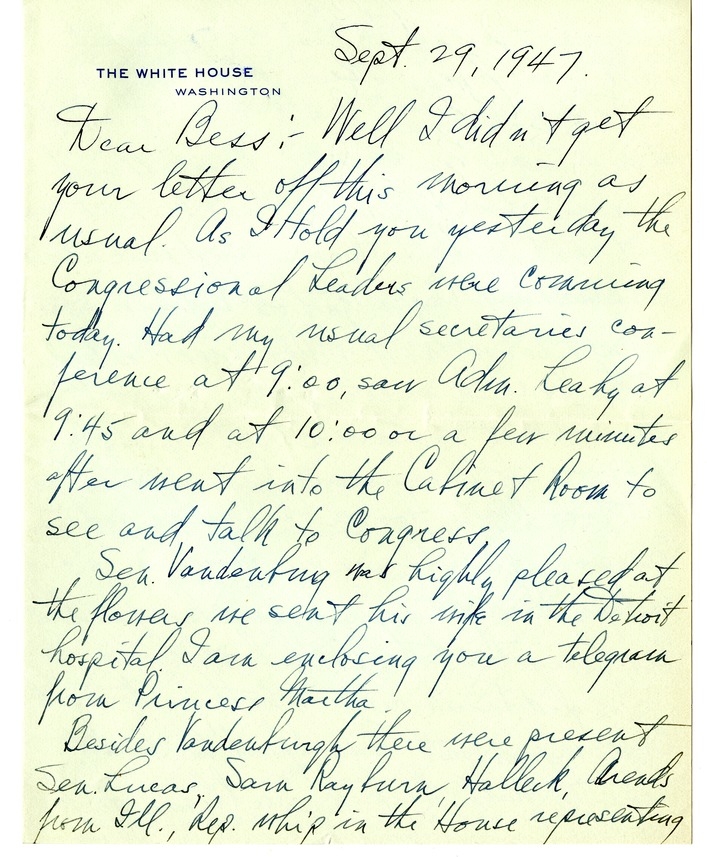 Sept. 29, 1947.
THE WHITE HOUSE
WASHINGTON
Dear Bess:- Well I didn't get
your letter off this morning as
usual. As I told you yesterday the
Congressional Leaders were comming
today. Had my usual secretaries con-
ference at 9:00, saw Adm. Leahy at
9:45 and at 10:00 or a few minutes
after went into the Cabinet Room to
see and talk to Congress.
Sen. Vandenburg was highly pleased at
the flowers we sent his wife in the Detroit
hospital. I am enclosing you a telegram
from Princess Martha.
Besides Vandenburgh there were present
Sen. Lucas, Sam Rayburn, Halleck, Arends
from Ill., Rep. whip in the House representing